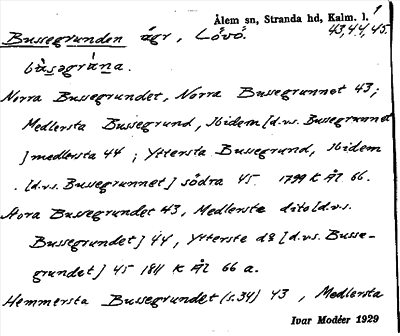 Ålem sn, Stranda hd, Kalm. l.
43, 44, 45.
Bussegrunden ägr, Lövö.
bùsəgràna.
Norra Bussegrundet, Norra Bussegrunnet 43;
Medlersta Bussegrund, ibidem [d.v.s. Bussegrunnet
] medlersta 44; Yttersta Bussegrund, ibidem
[d.v.s. Bussegrunnet] södra 45. 1799 K Ål 66.
Stora Bussegrundet 43, Medlersta dito [d.v.s.
Bussegrundet] 44, Ytterste dº [d.v.s. Busse-
grundet] 45 1811 K Ål 66 a.
Hemmersta Bussegrundet (s. 34) 43, Medlersta
Ivar Modéer 1929